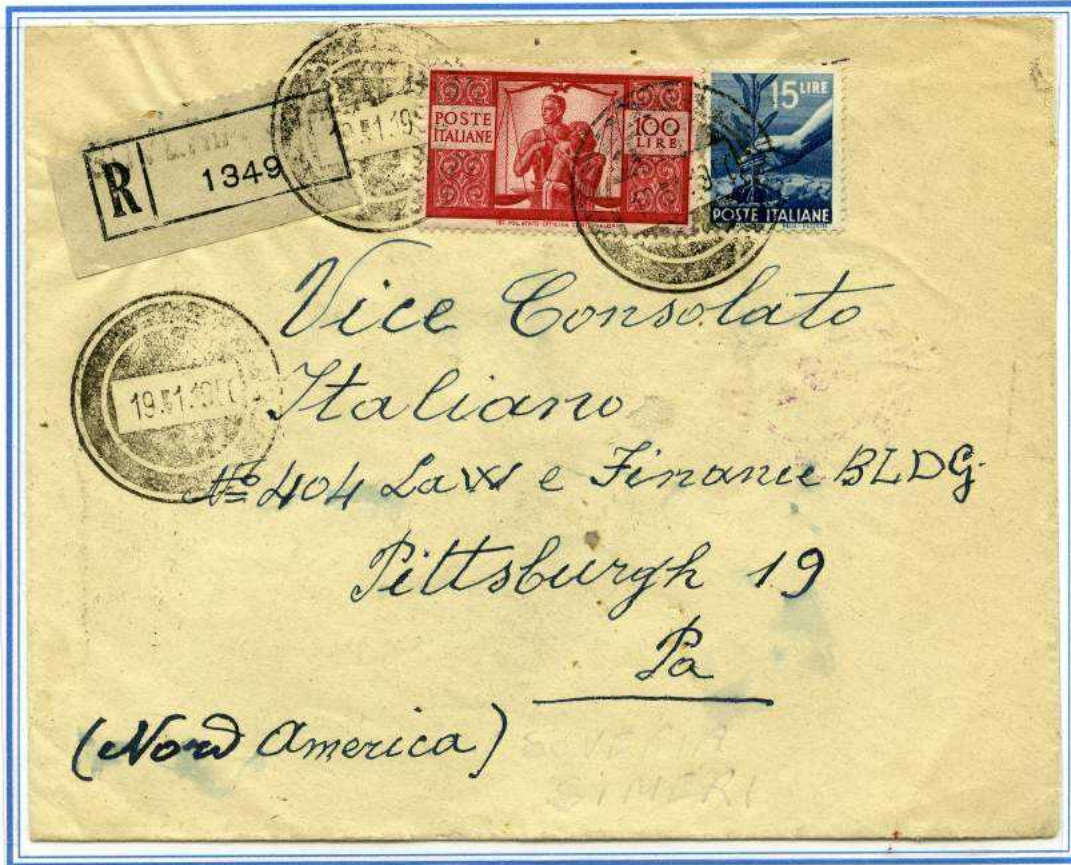 R 1349
POSTE ITALIANE
100 LIRE
15 LIRE
POSTE ITALIANE
Vice Consolato
Italiano
Nº 404 Law e Finance BLDG
Pittsburgh 19
Pa
(Nord America)
SIMERI